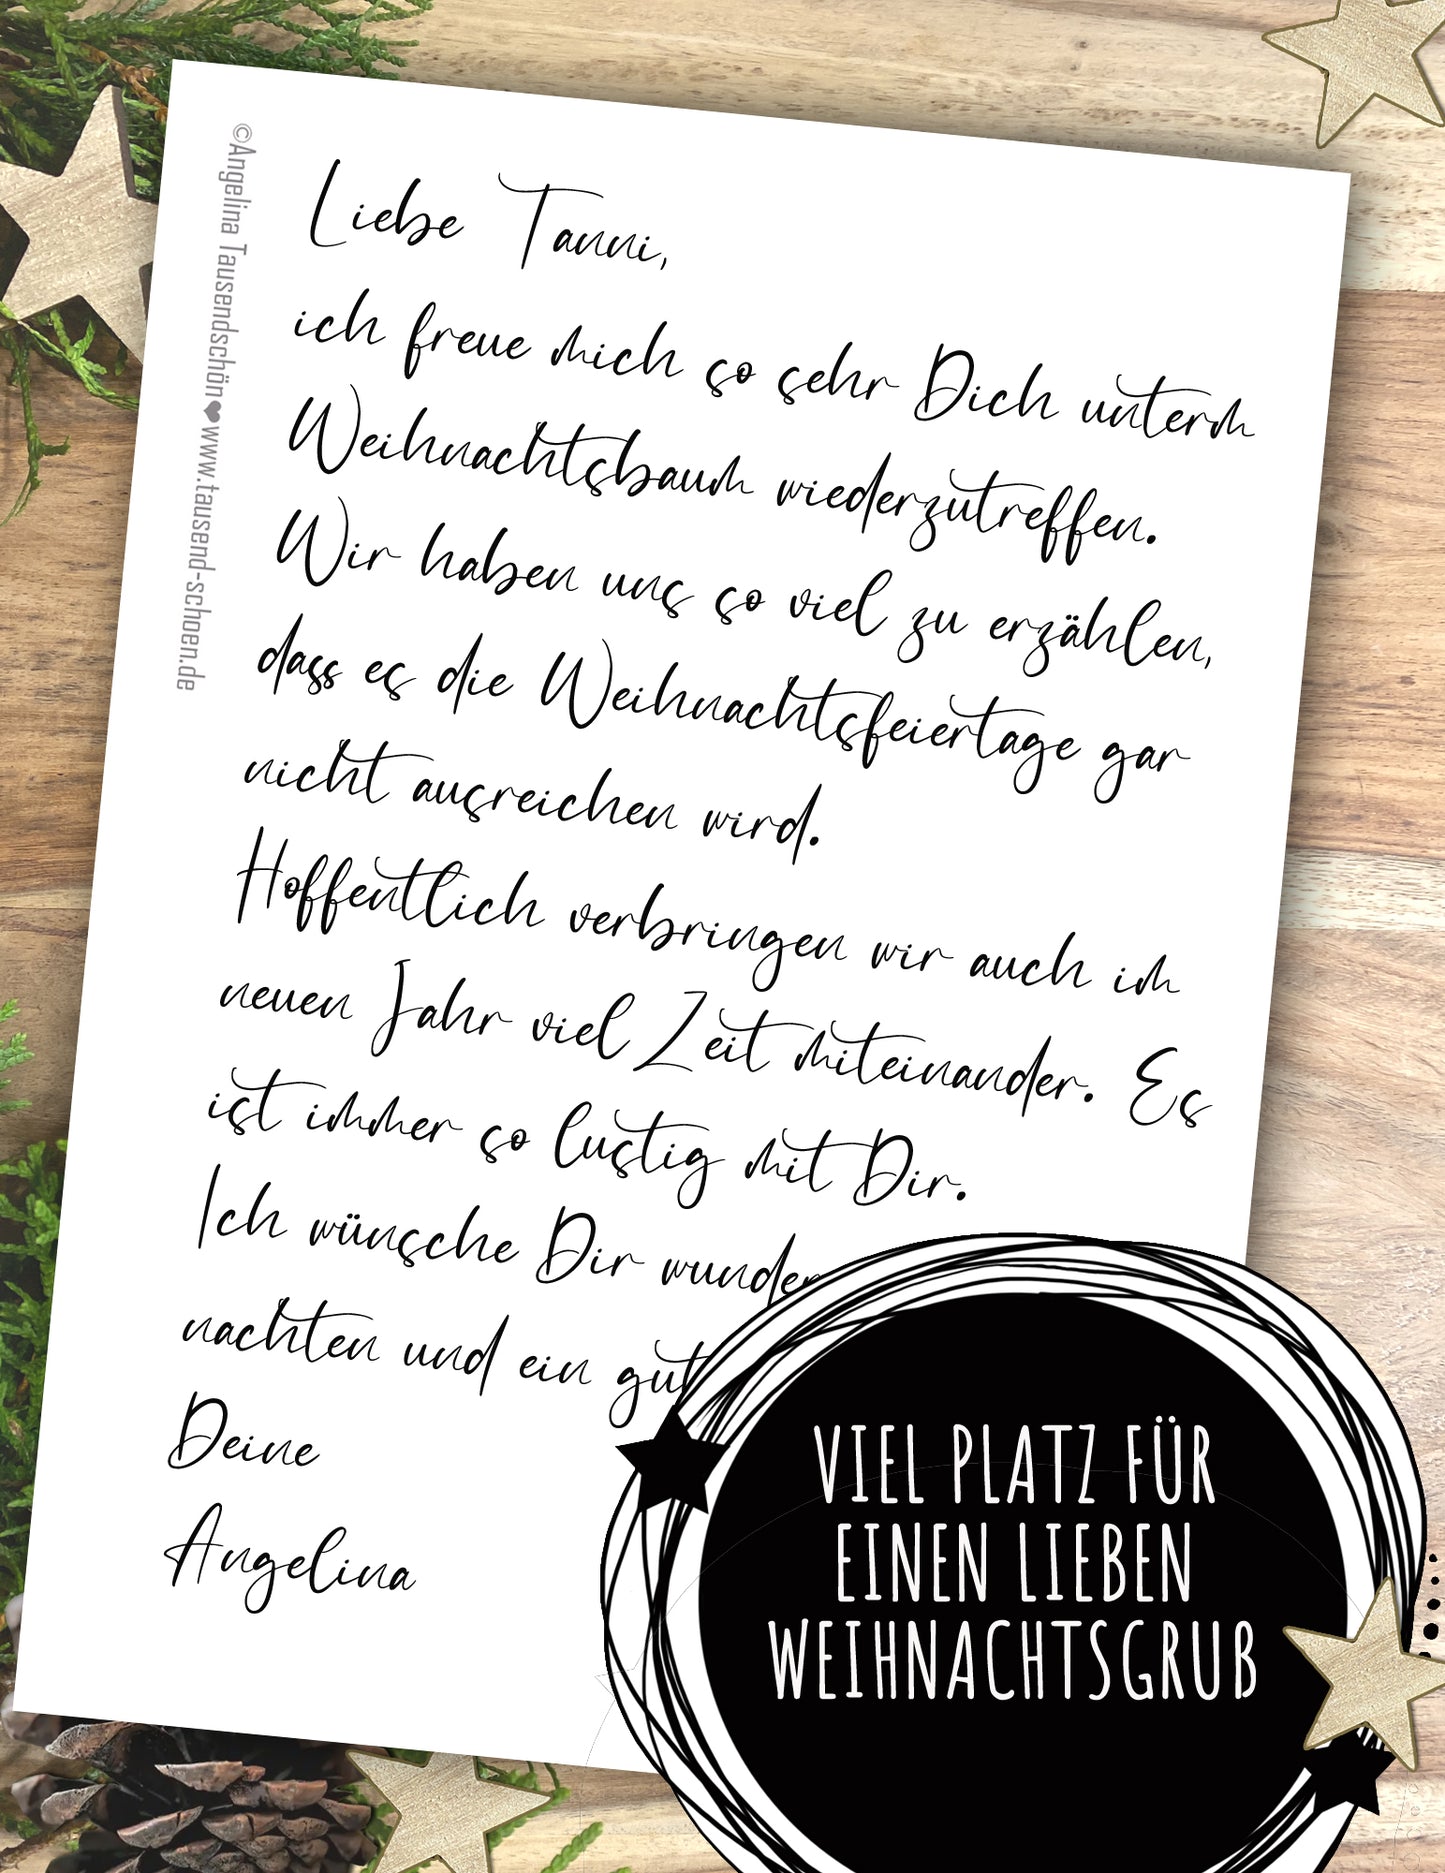 ©Angelina Tausendschön♥www.tausend-schoen.de
Liebe Tanni,
ich freue mich so sehr Dich unterm
Weihnachtsbaum wiederzutreffen.
Wir haben uns so viel zu erzählen,
dass es die Weihnachtsfeiertage gar
nicht ausreichen wird.
Hoffentlich verbringen wir auch im
neuen Jahr viel Zeit miteinander. Es
ist immer so lustig mit Dir.
Ich wünsche Dir wunder
nachten und ein gut
Deine
Angelina
VIEL PLATZ FÜR
EINEN LIEBEN
WEIHNACHTSGRUß